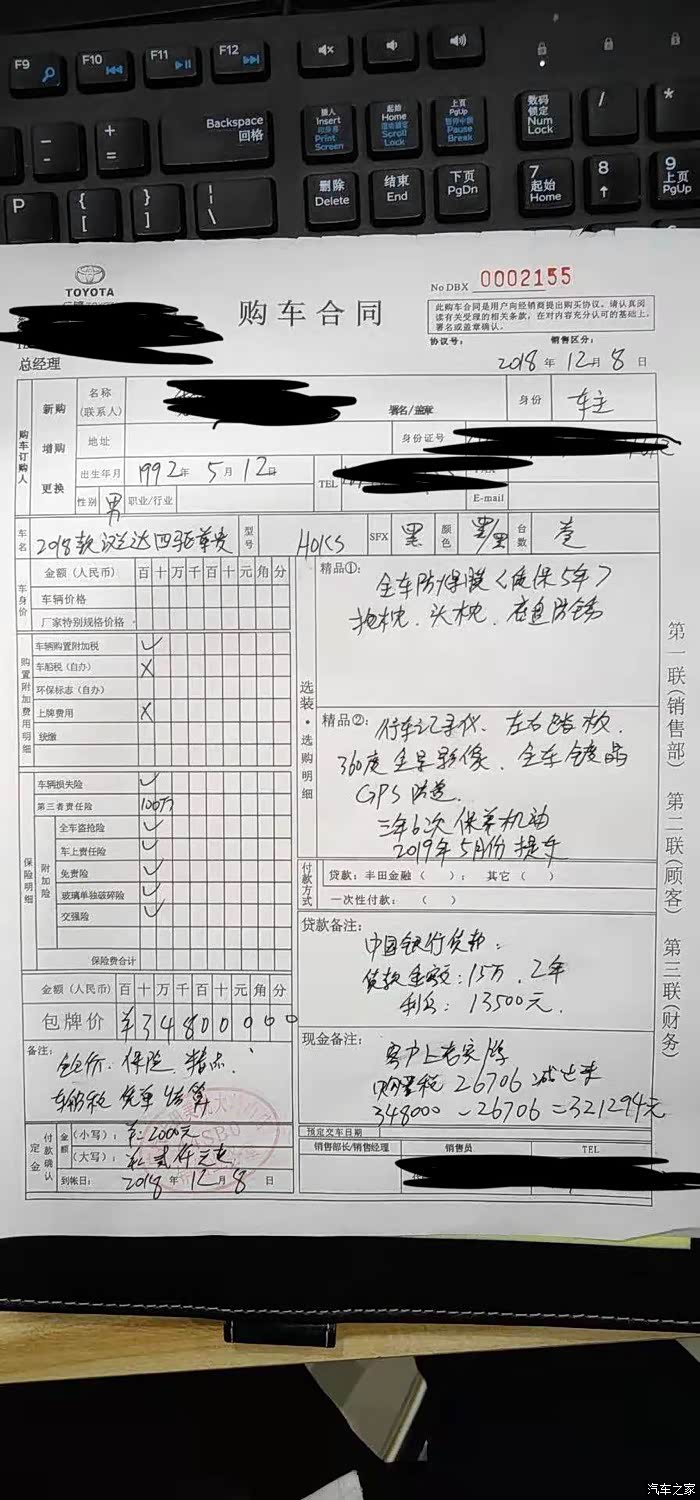 F9
F10
F11
F12
Backspace
回格
插入
Insert
印屏幕
Print
Screen
起始
Home
滚动锁定
Scroll
Lock
上页
PgUp
暂停中断
Pause
Break
数码
锁定
Num
Lock
/
*
-
-
+
=
P
{
[
}
]
|
\
删除
Delete
结束
End
下页
PgDn
7
起始
Home
8
9
上页
PgUp
TOYOTA
购车合同
No DBX 0002155
此购车合同是用户向经销商提出购买协议。请认真阅
读有关受理的相关条款，在对内容充分认可的基础上，
署名或盖章确认。
协议号： 销售区分：
总经理
2018年12月8日
购车订购人
新购
增购
更换
名称
(联系人)
署名/盖章
身份
车主
地址
身份证号
出生年月 1992年5月12日
TEL
FAX
性别 男 职业/行业
E-mail
车名 2018款汉兰达四驱尊贵 型号 HOKS SFX 黑 颜色 黑/黑 台数 壹
车身价
金额（人民币） 百十万千百十元角分
车辆价格
厂家特别规格价格
购置附加费用明细
车辆购置附加税 ✓
车船税（自办） X
环保标志（自办）
上牌费用 X
统缴
保险明细
车辆损失险 ✓
第三者责任险 100万
附加险
全车盗抢险 ✓
车上责任险 ✓
免责险 ✓
玻璃单独破碎险 ✓
交强险 ✓
保险费合计
金额（人民币） 百十万千百十元角分
包牌价 ¥34800000
备注：
车船税凭单结算
定金
付款确认
金额
（小写）：¥:2000元
（大写）：
到帐日： 2018年12月8日
选装·选购明细
精品①：
全车防爆膜<质保5年>
抱枕、头枕、底盘防锈
精品②： 行车记录仪、左右踏板、
360度全景影像、全车镀晶
GPS防盗
三年6次保养机油
2019年5月份提车
付款方式
贷款：丰田金融（ ）； 其它（ ）
一次性付款： （ ）
贷款备注：
中国银行贷款：
贷款金额：15万、2年
利息：13500元.
现金备注：
购置税26706减出来
348000-26706=321294元
预定交车日期
销售部长/销售经理 销售员 TEL
第一联(销售部) 第二联(顾客) 第三联(财务)
汽车之家